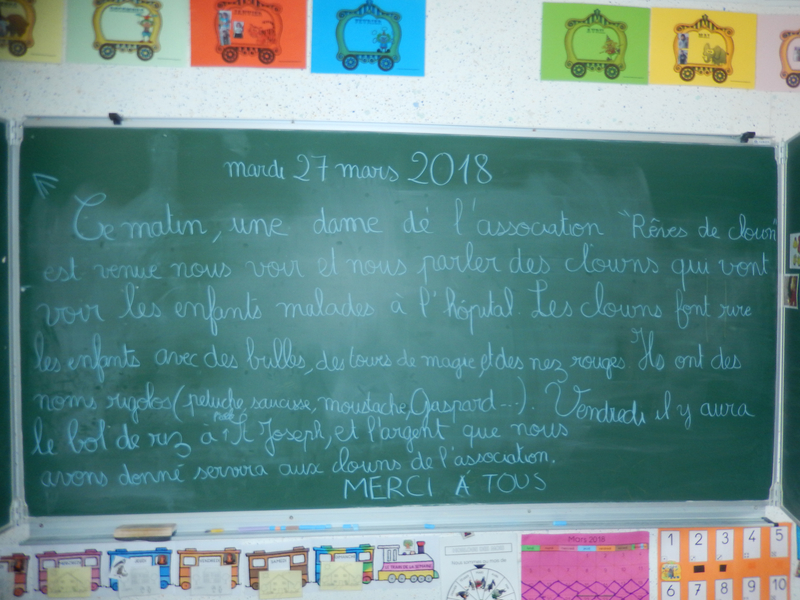 mardi 27 mars 2018
Ce matin, une dame de l'association "Rêves de clown"
est venue nous voir et nous parler des clowns qui vont
voir les enfants malades à l'hôpital. Les clowns font rire
les enfants avec des bulles, des tours de magie et des nez rouges. Ils ont des
noms rigolos (peluche, saucisse, moustache, Gaspard...). Vendredi il y aura
le bol de riz à St Joseph, et l'argent que nous
avons donné servira aux clowns de l'association.
MERCI À TOUS
Mars 2018
1 2 3 4 5
6 7 8 9 10